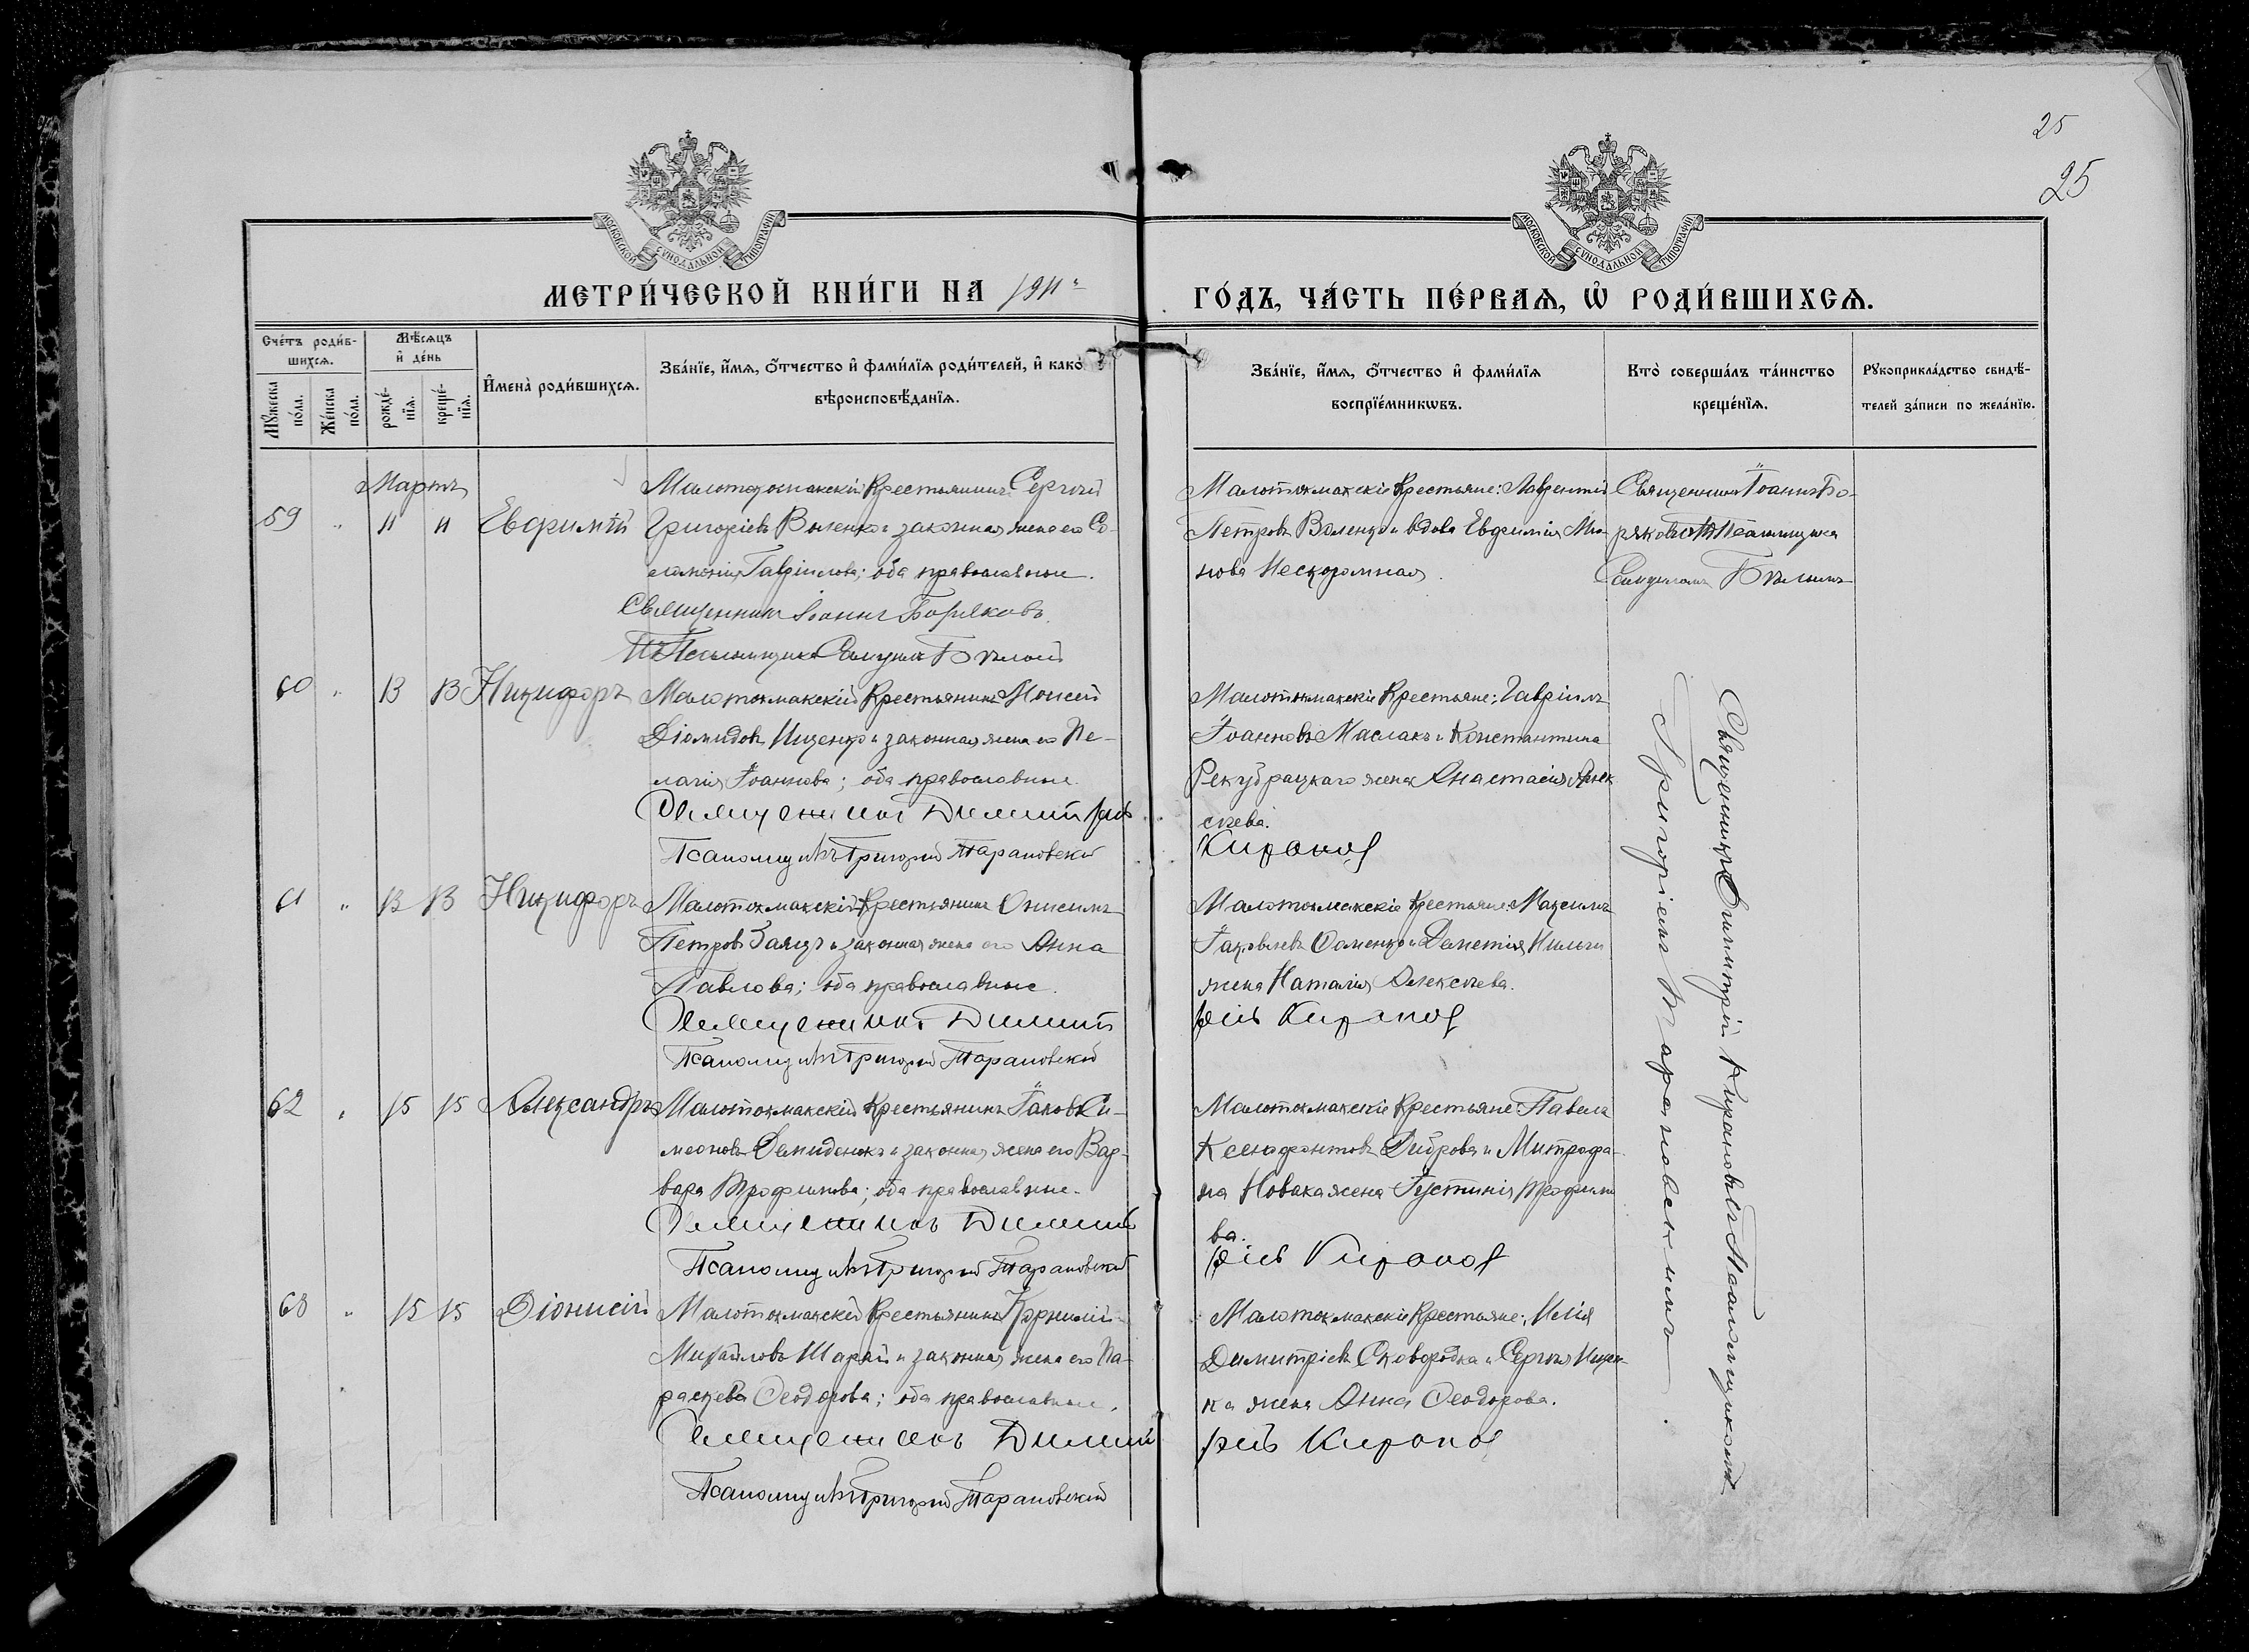 25
25
МОСКОВСКОЙ СѴНОДАЛЬНОЙ ТИПОГРАФІИ
МОСКОВСКОЙ СѴНОДАЛЬНОЙ ТИПОГРАФІИ
МЕТРИ́ЧЕСКОЙ КНИ́ГИ НА 1911 г.
ГО́ДЪ, ЧА́СТЬ ПЕ́РВАѦ, Ѡ҆ РОДИ́ВШИХСѦ.
Сче́тъ роди́в-
шихсѧ.
Мꙋ́жеска
по́ла.
Же́нска
по́ла.
Мѣ́сѧцъ
и҆ де́нь
рожде́-
нїѧ.
креще́-
нїѧ.
И҆мена̀ роди́вшихсѧ.
Зва́нїе, и҆́мѧ, ѻ҆́тчество и҆ фами́лїѧ роди́телей, и҆ како́гѡ
вѣроисповѣ́данїѧ.
Зва́нїе, и҆́мѧ, ѻ҆́тчество и҆ фами́лїѧ
воспрїе́мникѡвъ.
Кто̀ соверша́лъ та́инство
креще́нїѧ.
Рꙋкоприкла́дство свидѣ́-
телей за́писи по жела́нїю.
Мартъ
59 " 11 11 Евфимій
Малотокмакскій Крестьянинъ Сергѣй
Григоріевъ Воленко и законная жена его Со-
ломонія Гавріилова; оба православные.
Священникъ Іоаннъ Боряковъ.
И. д. Псаломщика Бѣлый
Малотокмакскіе Крестьяне: Лаврентій
Петровъ Воленко и вдова Евфимія Миро-
нова Нескоромная.
Священникъ Іоаннъ Бо-
ряковъ Псаломщика
Бѣлымъ
60 " 13 13 Никифоръ
Малотокмакскій Крестьянинъ Моисей
Діомидовъ Ищенко и законная жена его Пе-
лагія Іоаннова; оба православные.
Священникъ Димитрій
Псаломщикъ Григорій Тарановскій
Малотокмакскіе Крестьяне: Гавріилъ
Іоанновъ Маслакъ и Константина
Рекубрацкаго жена Анастасія Алек-
сѣева.
Кирановъ
61 " 13 13 Никифоръ
Малотокмакскій Крестьянинъ Онисимъ
Петровъ Заяцъ и законная жена его Анна
Павлова; оба православные.
Священникъ Димит
Псаломщикъ Григорій Тарановскій
Малотокмакскіе Крестьяне: Максимъ
Іаковлевъ Фоменко и
жена Наталія Алексѣева.
рій Кирановъ
62 " 15 15 Александръ
Малотокмакскій Крестьянинъ Іаковъ Си-
меоновъ Демиденко и законная жена его Вар-
вара Трофимова; оба православные.
Священникъ Димит
Псаломщикъ Григорій Тарановскій
Малотокмакскіе Крестьяне: Павелъ
Ксенофонтовъ Диброва и Митрофа-
на Новака жена Іустинія Трофимо
ва.
рій Кирановъ
63 " 15 15 Діонисій
Малотокмакскій Крестьянинъ Корнилій
Михайловъ Шарай и законная жена его Па-
раскева Феодорова; оба православные.
Священникъ Димит
Псаломщикъ Григорій Тарановскій
Малотокмакскіе Крестьяне: Илія
Димитріевъ Сковородка и Сергѣя Ищен-
ка жена Анна Феодорова.
рій Кирановъ
Священникъ Димитрій Кирановъ съ Псаломщикомъ
Григоріемъ Тарановскимъ.